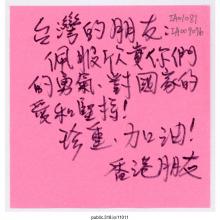 台灣的朋友:
佩服欣賞你們
的勇氣、對國家的
愛和堅持!
珍重、加油!
香港朋友
public.318.io/11011